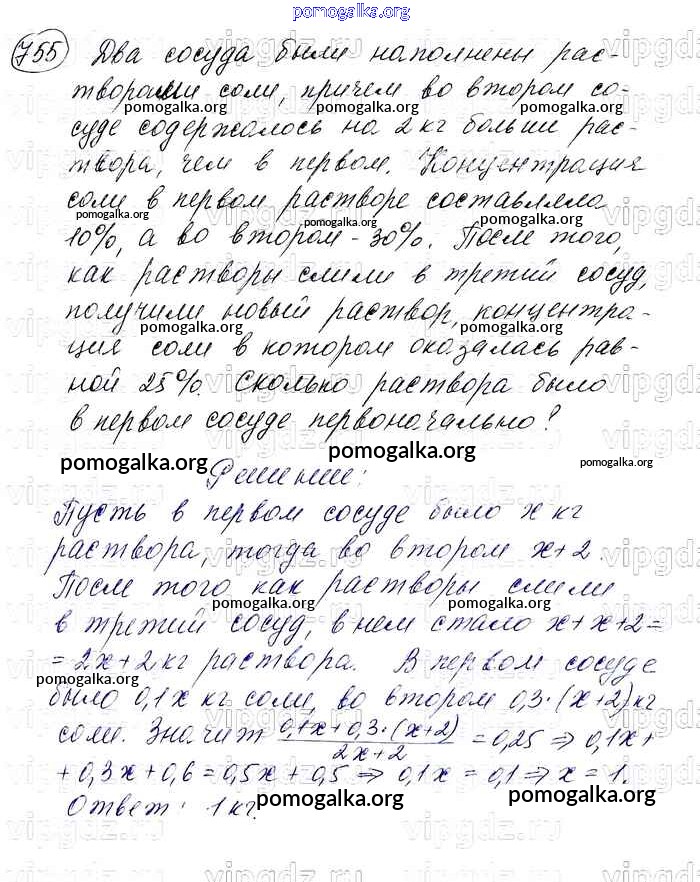 pomogalka.org
755 Два сосуда были наполнены рас-
творами соли, причем во втором со-
pomogalka.org pomogalka.org
суде содержалось на 2 кг больше рас-
твора, чем в первом. Концентрация
соли в первом растворе составляла
pomogalka.org pomogalka.org pomogalka.org
10%, а во втором - 30%. После того,
как растворы слили в третий сосуд,
получили новый раствор, концентра-
pomogalka.org pomogalka.org
ция соли в котором оказалась рав-
ной 25%. Сколько раствора было
в первом сосуде первоначально?
pomogalka.org pomogalka.org pomogalka.org
Решение:
Пусть в первом сосуде было x кг
раствора, тогда во втором x+2.
После того как растворы слили
pomogalka.org pomogalka.org
в третий сосуд, в нем стало x+x+2=
=2x+2 кг раствора. В первом сосуде
pomogalka.org
было 0,1x кг соли, во втором 0,3·(x+2) кг
соли. Значит (0,1x+0,3·(x+2))/(2x+2) = 0,25 ⇒ 0,1x+
+0,3x+0,6=0,5x+0,5 ⇒ 0,1x=0,1 ⇒ x=1.
pomogalka.org pomogalka.org
Ответ: 1 кг.
vipgdz.ru vipgdz.ru vipgdz.ru